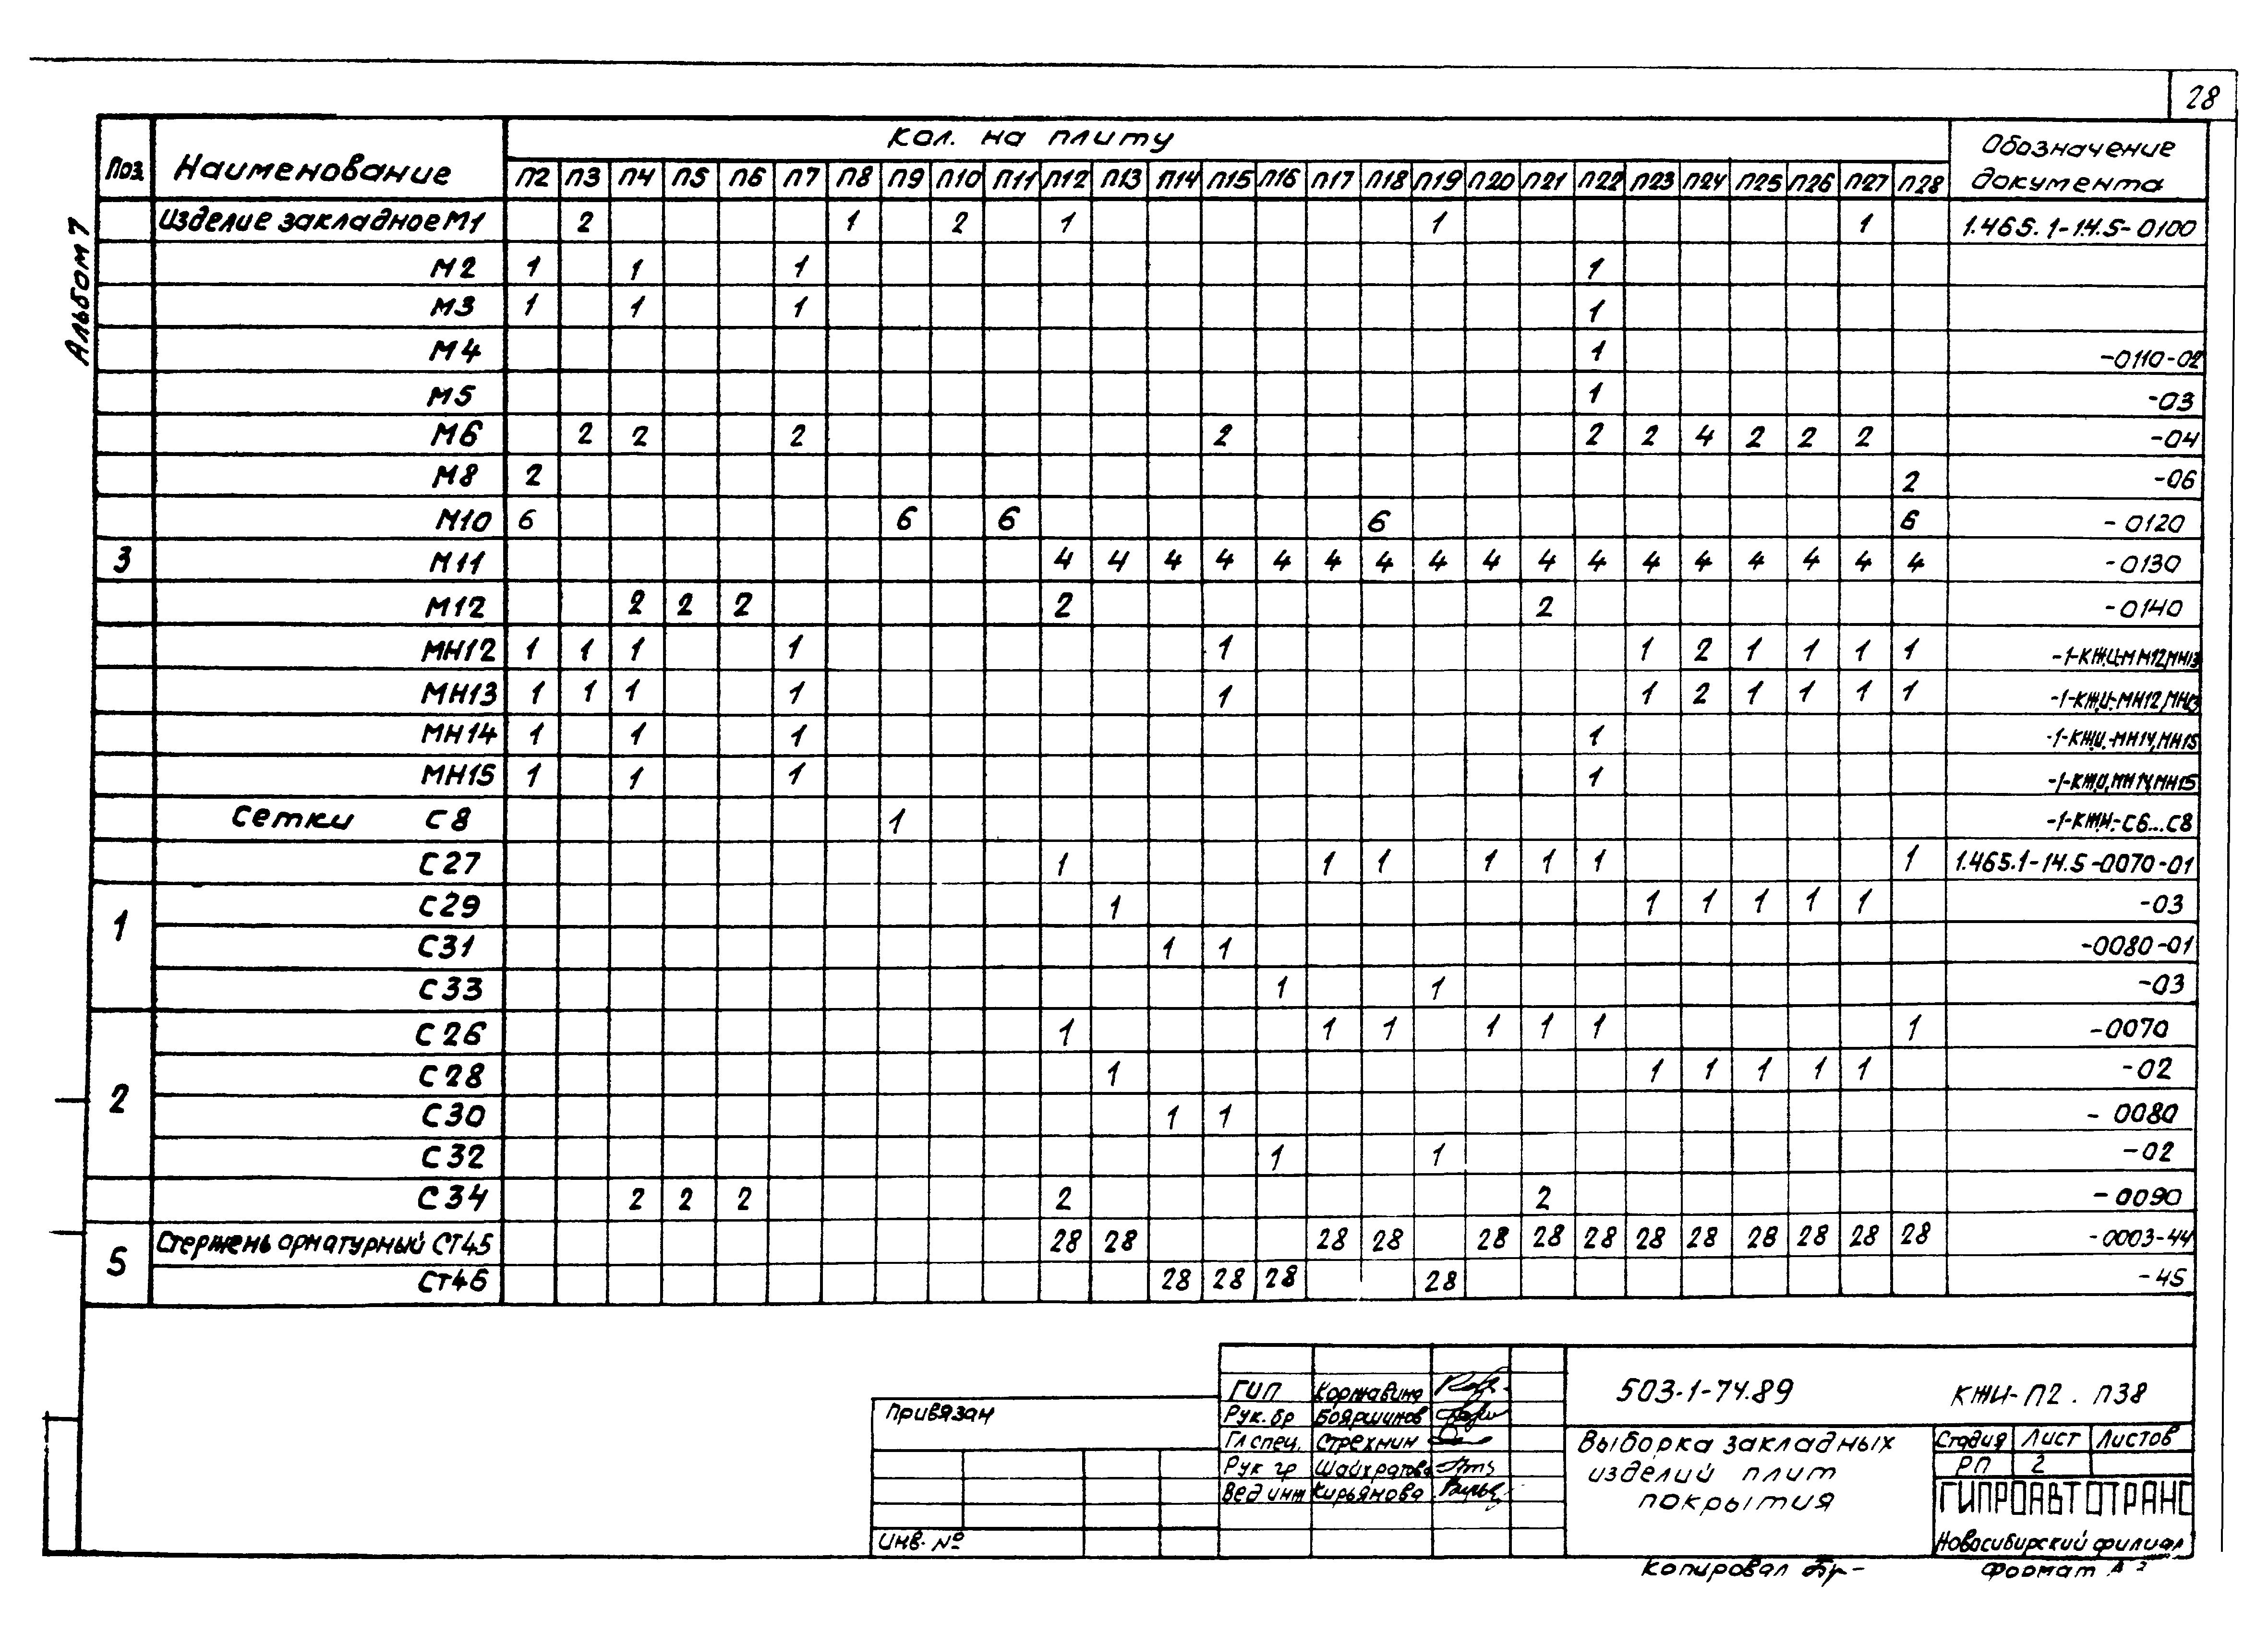 28
Альбом 7
Поз. Наименование Кол. на плиту Обозначение документа
П2 П3 П4 П5 П6 П7 П8 П9 П10 П11 П12 П13 П14 П15 П16 П17 П18 П19 П20 П21 П22 П23 П24 П25 П26 П27 П28
Изделие закладное М1 2 1 2 1 1 1 1.465.1-14.5-0100
М2 1 1 1 1
М3 1 1 1 1
М4 1 -0110-02
М5 1 -03
М6 2 2 2 2 2 2 4 2 2 2 -04
М8 2 2 -06
М10 6 6 6 6 6 -0120
3 М11 4 4 4 4 4 4 4 4 4 4 4 4 4 4 4 4 4 -0130
М12 2 2 2 2 2 -0140
МН12 1 1 1 1 1 1 2 1 1 1 1 -1-КЖИ-МН12,МН13
МН13 1 1 1 1 1 1 2 1 1 1 1 -1-КЖИ-МН12,МН13
МН14 1 1 1 1 -1-КЖИ-МН14,МН15
МН15 1 1 1 1 -1-КЖИ,МН14,МН15
Сетки С8 1 -1-КЖИ-С6...С8
С27 1 1 1 1 1 1 1 1.465.1-14.5-0070-01
1 С29 1 1 1 1 1 1 -03
С31 1 1 -0080-01
С33 1 1 -03
С26 1 1 1 1 1 1 1 -0070
2 С28 1 1 1 1 1 1 -02
С30 1 1 -0080
С32 1 1 -02
С34 2 2 2 2 2 -0090
5 Стержень арматурный СТ45 28 28 28 28 28 28 28 28 28 28 28 28 28 -0003-44
СТ46 28 28 28 28 -45
Привязан
Инв. №
ГИП Коржавина
Рук. бр Бояршинов
Гл спец. Стрехнин
Рук гр Шайхратова
Вед инж Кирьянова
503-1-74.89 КЖИ-П2. П38
Выборка закладных
изделий плит
покрытия
Стадия Лист Листов
РП 2
ГИПРОАВТОТРАНС
Новосибирский филиал
Копировал Формат А3